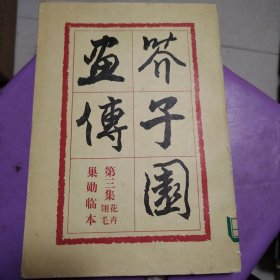 芥子園
畫傳
第三集 花卉翎毛
巢勋临本